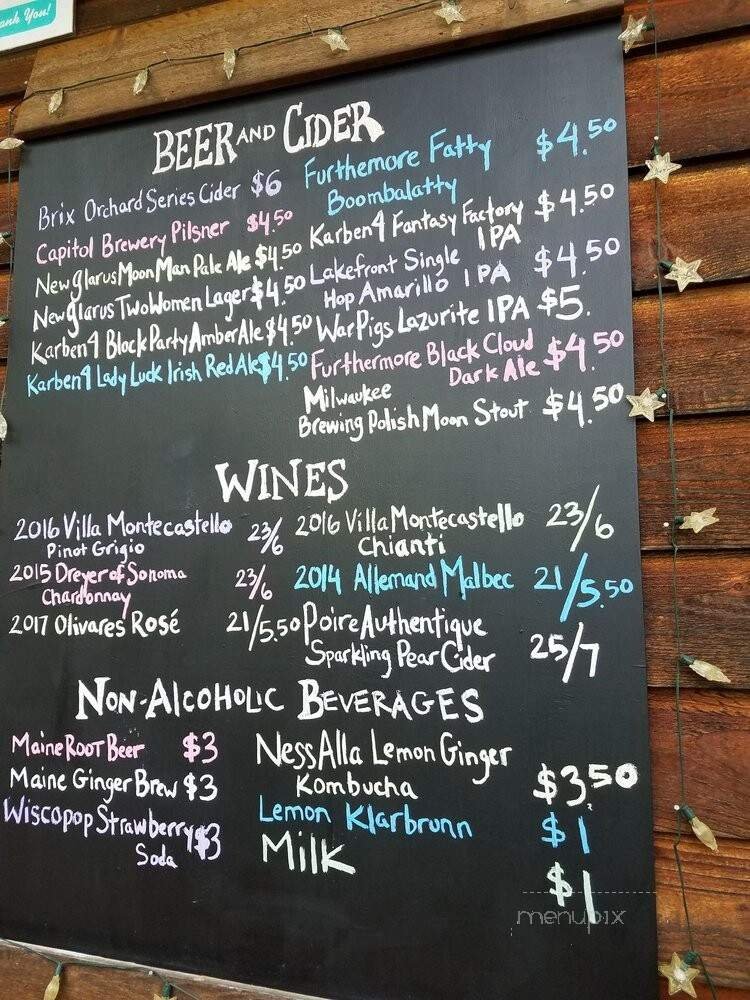 ank You!
BEER AND CIDER
Brix Orchard Series Cider $6
Capitol Brewery Pilsner $4.50
New glarus Moon Man Pale Ale $4.50
New glarus Two Women Lager $4.50
Karben4 Block Party Amber Ale $4.50
Karben4 Lady Luck Irish Red Ale $4.50
Furthemore Fatty $4.50
Boombalatty
Karben4 Fantasy Factory $4.50
IPA
Lakefront Single $4.50
Hop Amarillo IPA
War Pigs Lazurite IPA $5.
Furthermore Black Cloud $4.50
Dark Ale
Milwaukee
Brewing Polish Moon Stout $4.50
WINES
2016 Villa Montecastello 23/6
Pinot Grigio
2015 Dreyer of Sonoma 23/6
Chardonnay
2017 Olivares Rosé 21/5.50
2016 Villa Montecastello 23/6
Chianti
2014 Allemand Malbec 21/5.50
Poire Authentique
Sparkling Pear Cider 25/7
NON-ALCOHOLIC BEVERAGES
Maine Root Beer $3
Maine Ginger Brew $3
Wiscopop Strawberry $3
Soda
NessAlla Lemon Ginger
Kombucha $3.50
Lemon Klarbrunn $1
Milk $1
menupix